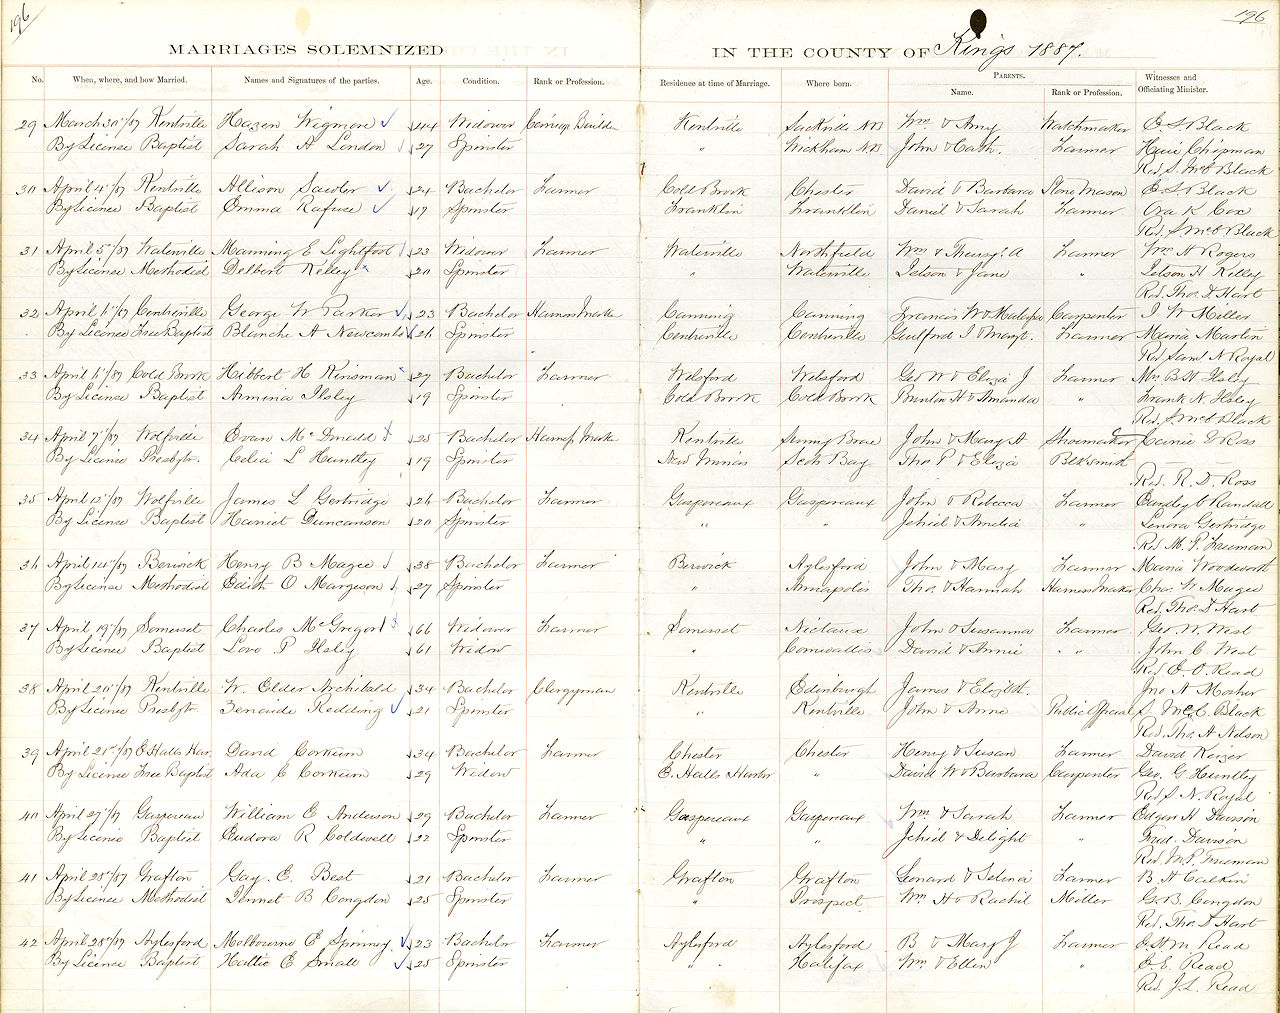 196
196
MARRIAGES SOLEMNIZED IN THE COUNTY OF Kings 1887.
No. When, where, and how Married. Names and Signatures of the parties. Age. Condition. Rank or Profession. Residence at time of Marriage. Where born. PARENTS. Name. Rank or Profession. Witnesses and Officiating Minister.
29 March 30th/87 Kentville Hazen Wigmore 44 Widower Carriage Builder Kentville Sackville NB Wm. & Amy Watchmaker E. S. Black
By License Baptist Sarah A London 27 Spinster " Wickham NB John & Cath. Farmer Chipman
Rev. S. McC Black
30 April 4th/87 Kentville Allison Sawler 24 Bachelor Farmer Cold Brook Chester David & Barbara Stone Mason E. S. Black
By License Baptist Emma Rafuse 17 Spinster Franklin Franklin Daniel & Sarah Farmer Ora K Cox
Rev. S McC Black
31 April 5th/87 Waterville Manning E Lightfoot 23 Widower Farmer Waterville Northfield Wm & A Farmer Wm H Rogers
By License Methodist Delbert Kelley 20 Spinster " Waterville & Jane " H Kelley
Rev. Tho. D. Hart
32 April 6th/87 Centreville George W Parker 23 Bachelor Harness Maker Canning Canning Francis W & Carpenter I W Miller
By License Free Baptist Blanche A Newcombe 26 Spinster Centreville Centreville Guilford I & Margt. Farmer Maria Martin
Rev Saml N Royal
33 April 6th/87 Cold Brook Hibbert H Kinsman 27 Bachelor Farmer Welsford Welsford Geo W & Eliza J Farmer Mrs B H Ilsley
By License Baptist Armina Ilsley 19 Spinster Cold Brook Cold Brook H & Amanda " Frank N. Ilsley
Rev. S McC Black
34 April 7th/87 Wolfville Evan McDonald 25 Bachelor Harness Maker Kentville Sunny Brae John & Mary A Shoemaker Carrie E Ross
By License Presbytr. Celia L Huntley 19 Spinster New Minas Scots Bay Tho P & Eliza Blksmith
Rev. R. D. Ross
35 April 12th/87 Wolfville James L Gertridge 26 Bachelor Farmer Gaspereaux Gaspereaux John & Rebecca Farmer Randall
By License Baptist Harriet Duncanson 20 Spinster " " Jehiel & Amelia " Lenora Gertridge
Rev. M. P. Freeman
36 April 14th/87 Berwick Henry B Magee 38 Bachelor Farmer Berwick Aylesford John & Mary Farmer Maria Woodworth
By License Methodist Edith O Margeson 27 Spinster " Annapolis Tho. & Hannah Harness Maker Chas. W Magee
Rev. Tho D Hart
37 April 19th/87 Somerset Charles McGregor 66 Widower Farmer Somerset Nictaux John & Susanna Farmer Geo. W. West
By License Baptist Love P Ilsley 61 Widow " Cornwallis David & Annie " John C. West
Rev E. O. Read
38 April 20th/87 Kentville W. Elder Archibald 34 Bachelor Clergyman Kentville Edinburgh James & Elizbth. Jno A Mosher
By License Presbytr. Zenaide Redding 21 Spinster " Kentville John & Anne Public Official S. McC. Black
Rev. Tho. A Nelson
39 April 21st/87 E Halls Har. David Corkum 34 Bachelor Farmer Chester Chester Henry & Susan Farmer David Keizer
By License Free Baptist Ada C Corkum 29 Widow E. Halls Harbor " David W & Barbara Carpenter Geo. G Huntley
Rev S. N. Royal
40 April 27th/87 Gaspereau William E Anderson 29 Bachelor Farmer Gaspereaux Gaspereaux Wm. & Sarah Farmer Edgar H Davison
By License Baptist Eudora R Coldwell 22 Spinster " " Jehiel & Delight " Fred. Davison
Rev. M. P. Freeman
41 April 28th/87 Grafton Gay. E. Best 21 Bachelor Farmer Grafton Grafton Lenard & Selina Farmer B. H Calkin
By License Methodist Jennet B Congdon 25 Spinster " Prospect Wm H & Rachel Miller G. B. Congdon
Rev. Tho. D Hart
42 April 28th/87 Aylesford Melbourne E Spinney 23 Bachelor Farmer Aylesford Aylesford B & Mary J Farmer Read
By License Baptist Hattie E Small 25 Spinster " Halifax Wm. & Ellen " E. E. Read
Rev. J. L. Read